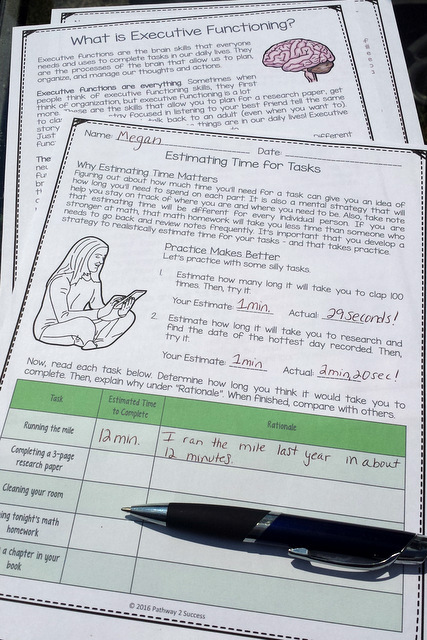 What is Executive Functioning?
Executive functions are the brain skills that everyone
needs and uses to complete tasks in our daily lives. They
are the processes of the brain that allow us to plan,
organize, and manage our thoughts and actions.
Executive functions are everything. Sometimes when
people think of executive functioning skills, they first
think of organization, but executive functioning is a lot
more. are the skills that allow you to plan for a research paper, get
to stay focused in listening to your best friend tell the same
story talk back to an adult (even when you want to).
Just things are in our daily lives! Executive
func different
The
Name: Megan Date:
Estimating Time for Tasks
Why Estimating Time Matters
Figuring out about how much time you'll need for a task can give you an idea of
how long you'll need to spend on each part. It is also a mental strategy that will
help you stay on track of where you are and where you need to be. Also, take note
that estimating time will be different for every individual person. If you are
stronger at math, that math homework will take you less time than someone who
needs to go back and review notes frequently. It's important that you develop a
strategy to realistically estimate time for your tasks - and that takes practice.
Practice Makes Better
Let's practice with some silly tasks.
1. Estimate how many long it will take you to clap 100
times. Then, try it.
Your Estimate: 1min. Actual: 29seconds!
2. Estimate how long it will take you to research and
find the date of the hottest day recorded. Then,
try it.
Your Estimate: 1min Actual: 2min,20sec!
Now, read each task below. Determine how long you think it would take you to
complete. Then, explain why under "Rationale". When finished, compare with others.
Task Estimated Time to Complete Rationale
Running the mile 12min. I ran the mile last year in about
12 minutes.
Completing a 3-page
research paper
Cleaning your room
ing tonight's math
homework
a chapter in your
book
© 2016 Pathway 2 Success